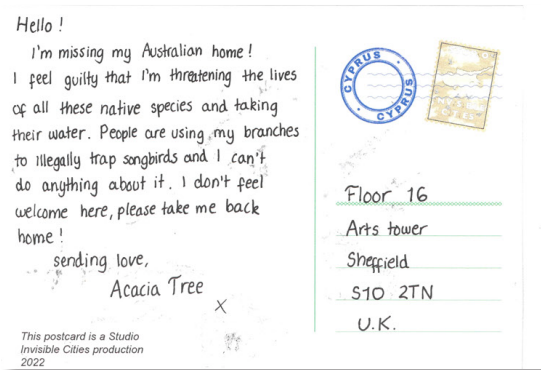 Hello !
I'm missing my Australian home !
I feel guilty that I'm threatening the lives
of all these native species and taking
their water. People are using my branches
to illegally trap songbirds and I can't
do anything about it. I don't feel
welcome here, please take me back
home !
sending love,
Acacia Tree
X
This postcard is a Studio
Invisible Cities production
2022
CYPRUS
CYPRUS
Floor 16
Arts tower
Sheffield
S10 2TN
U.K.